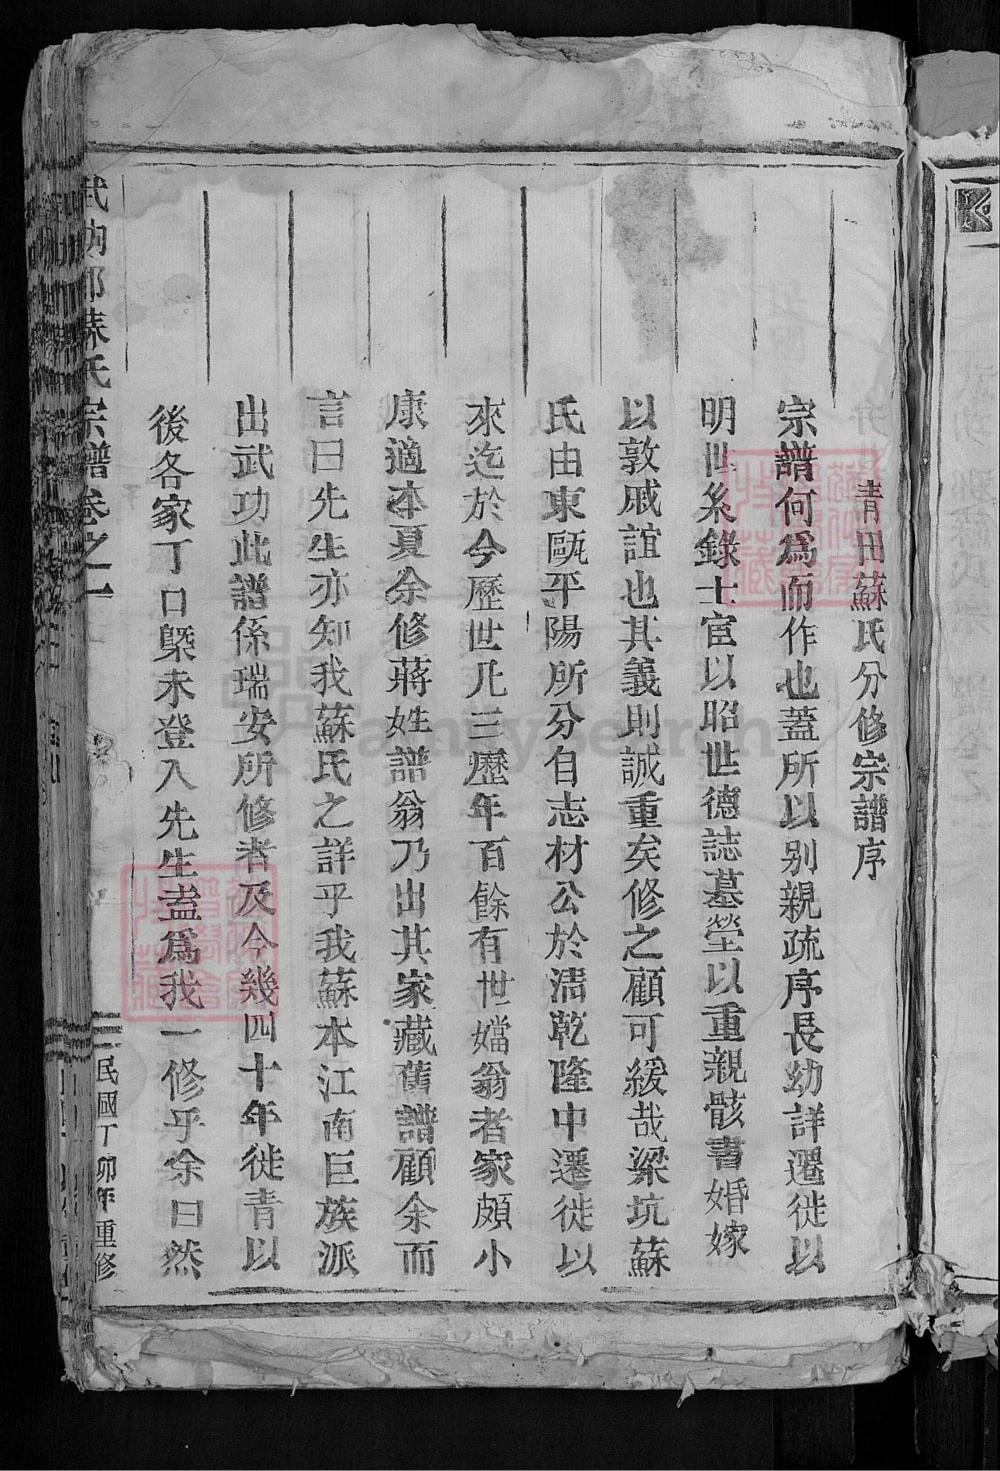 青田蘇氏分修宗譜序
宗譜何爲而作也蓋所以別親疏序長幼詳遷徙以
明世系錄士宦以昭世德誌墓塋以重親骸書婚嫁
以敦戚誼也其義則誠重矣修之顧可緩哉梁坑蘇
氏由東甌平陽所分自志材公於淸乾隆中遷徙以
來迄於今歷世凡三歷年百餘有世嬙翁者家頗小
康適本夏余修蔣姓譜翁乃出其家藏舊譜顧余而
言曰先生亦知我蘇氏之詳乎我蘇本江南巨族派
出武功此譜係瑞安所修者及今幾四十年徙青以
後各家丁口槩未登入先生盍爲我一修乎余曰然
武功郡蘇氏宗譜卷之一
民國丁卯年重修